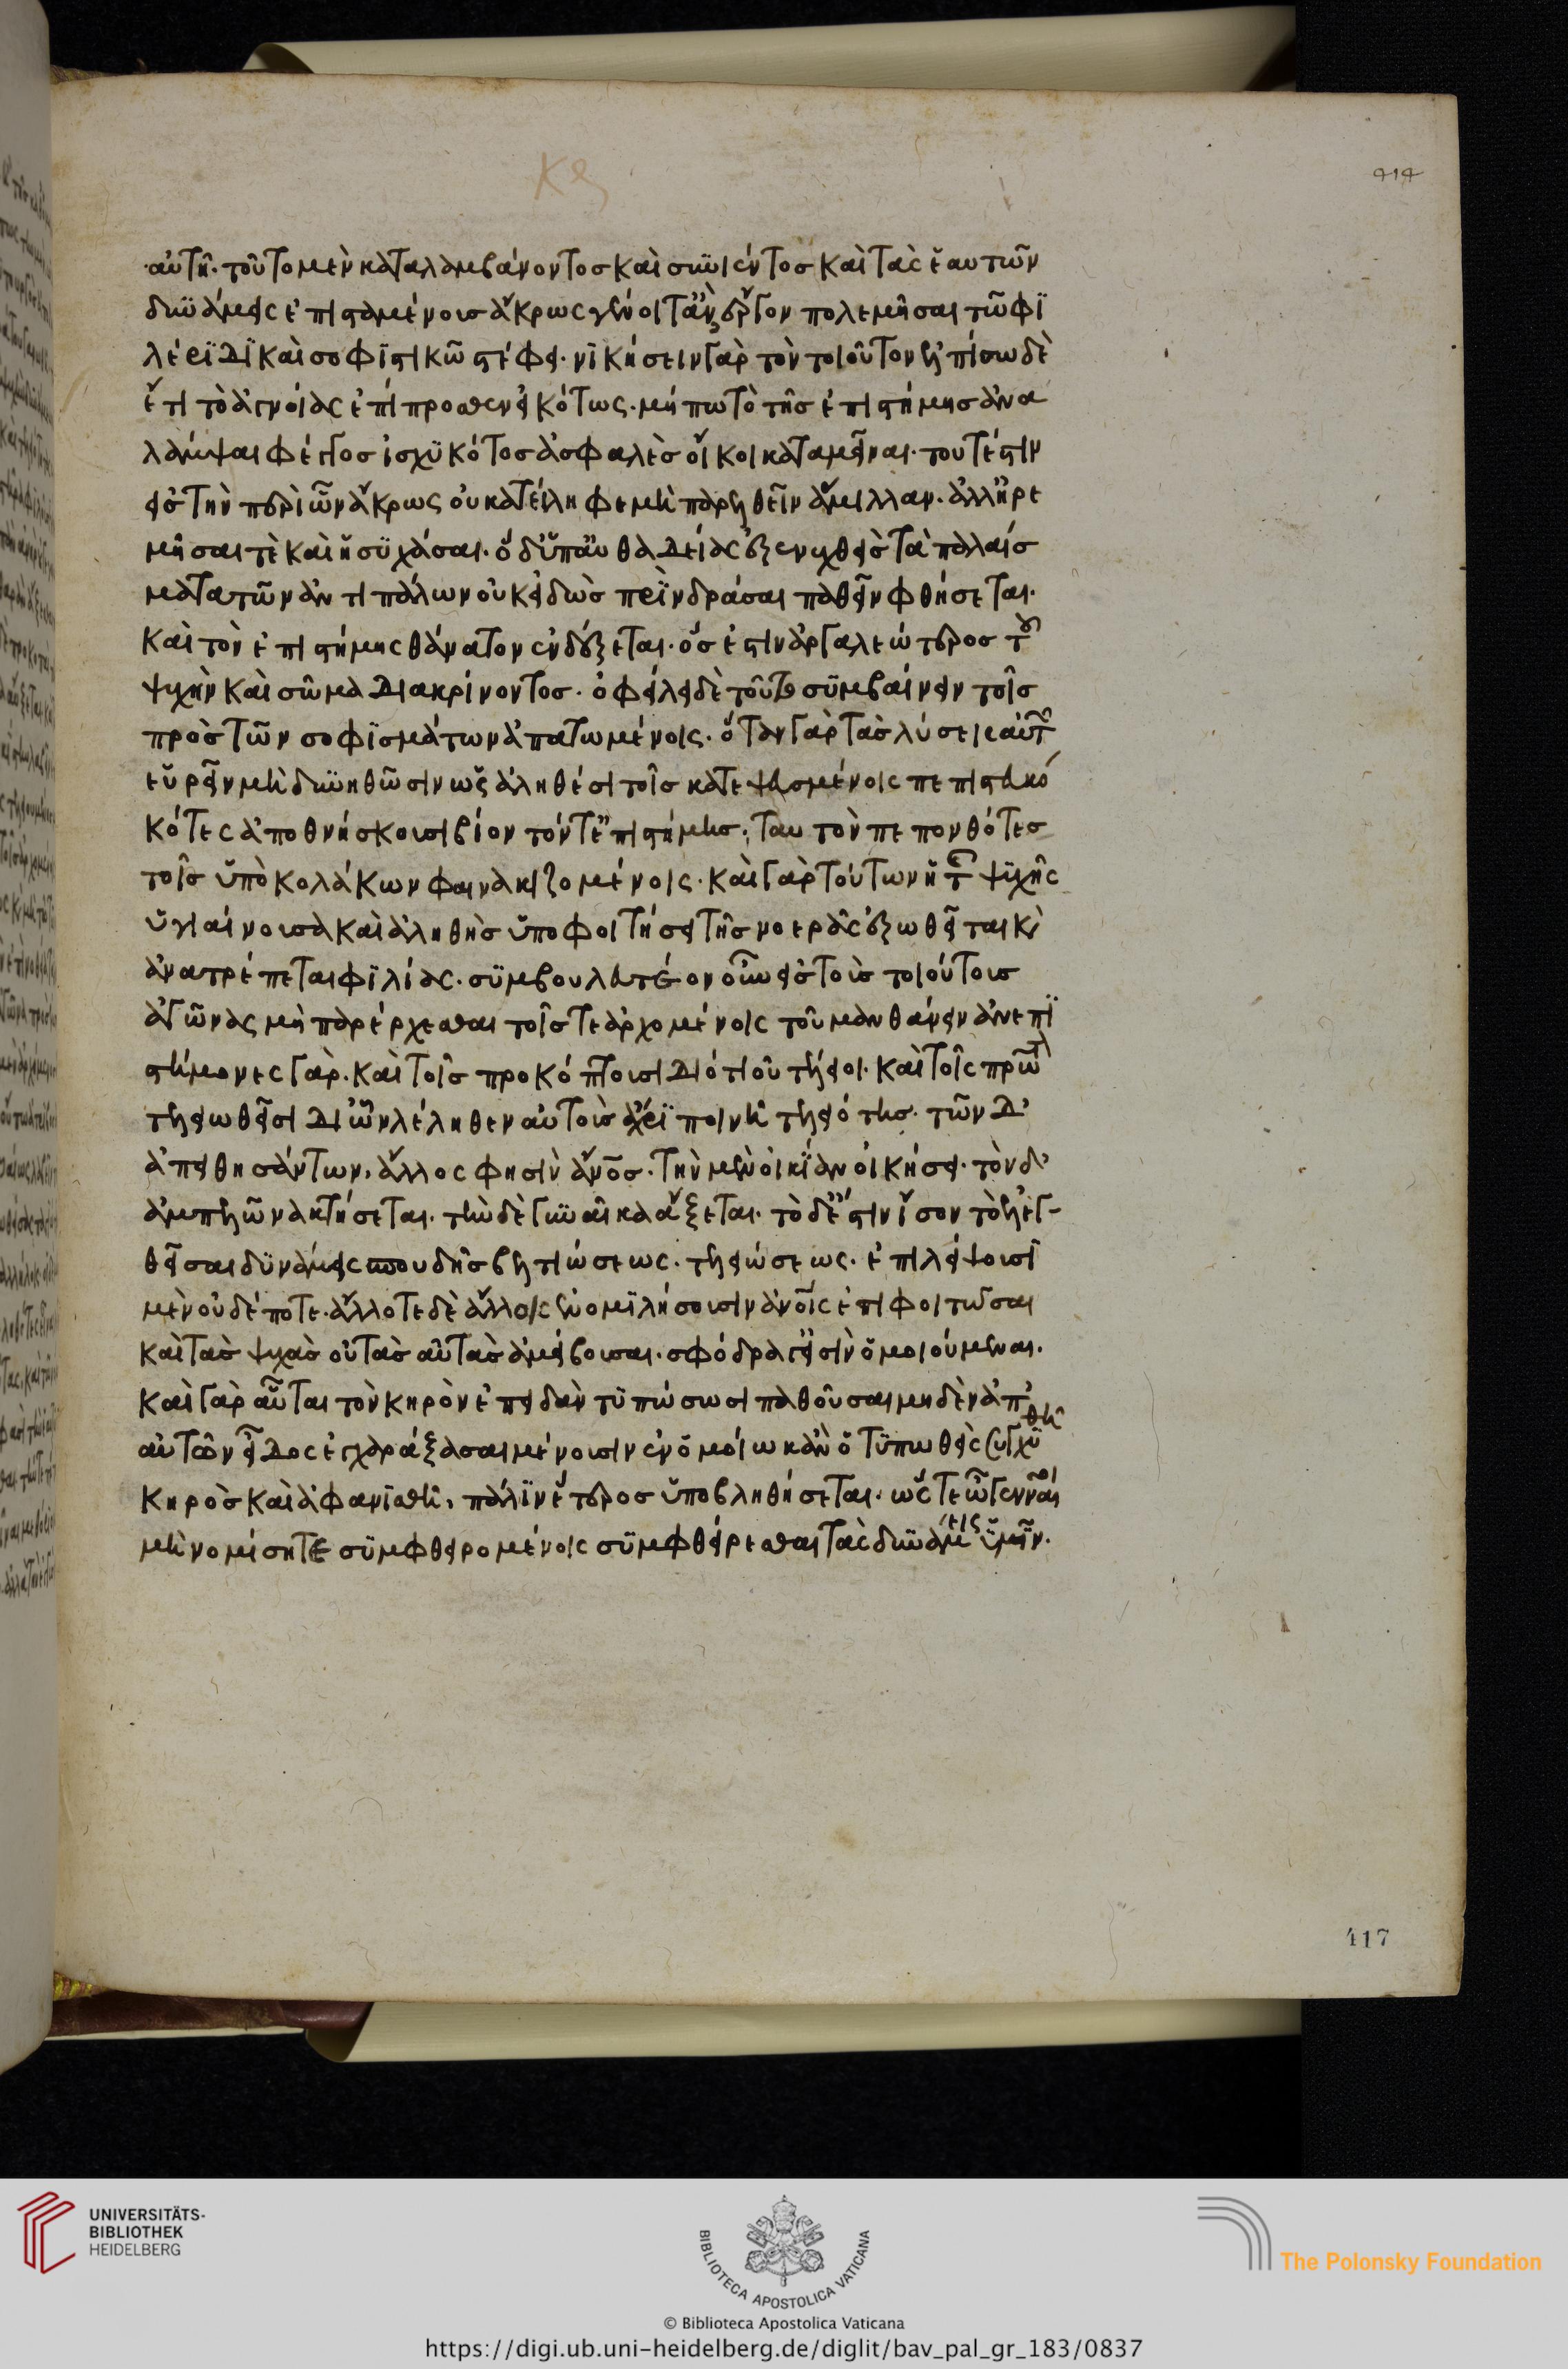 κς
414
αὐτῆ· τοῦτο μὲν καταλαμβάνοντος καὶ συνιέντος καὶ τὰς ἑαυτῶν
δυνάμεις ἐπισταμένοις ἄκρως γένοιτ' ἂν ἔργον πολεμῆσαι τῶ φι
λέριδι καὶ σοφιστικῶ στίφει· νικήσειν γὰρ τὸν τοιοῦτον ἐλπίσω δὲ
ἔτι τὸ ἀγνοίας ἐπιπροσθεν κότως· μήπω τὸ τῆς ἐπιστήμης ἀνα
λάμψαι φέγγος ἰσχυκότος ἀσφαλὲς οἴκοι καταμεῖναι· τουτέστιν
εἰς τὴν περὶ ὧν ἄκρως οὐ κατείληφε μὴ παρελθεῖν ἅμιλλαν· ἀλλ' ἠρε
μῆσαι τὲ καὶ ἡσυχάσαι· ὁ δ' ὑπ' αὐθαδείας ἐξενεχθεὶς τὰ παλαίσ
ματα τῶν ἀντιπάλων οὐκ εἰδὼς πρὶν δράσαι παθεῖν φθήσεται·
καὶ τὸν ἐπιστήμης θάνατον ἐνδέξεται· ὅς ἐστιν ἀργαλεώτερος τοῦ
ψυχὴν καὶ σῶμα διακρίνοντος· ὀφείλει δὲ τοῦτο συμβαίνειν τοῖς
πρὸς τῶν σοφισμάτων ἀπατωμένοις· ὅταν γὰρ τὰς λύσεις αὐτῶν
εὑρεῖν μὴ δυνηθῶσιν ὡς ἀληθέσι τοῖς κατεψευσμένοις πεπιστευκό
κότες ἀποθνήσκουσι βίον τόν τ' ἐπιστήμης· ταυτὸν πεπονθότες
τοῖς ὑπὸ κολάκων φαινακιζομένοις· καὶ γὰρ τούτων ἡ τῆς ψυχῆς
ὑγιαίνουσα καὶ ἀληθὴς ὑποφοιτήσει τῆς νοερᾶς ἐξωθεῖται καὶ
ἀνατρέπεται φιλίας· συμβουλευτέον οὖν εἰς τοὺς τοιούτους
ἀγῶνας μὴ παρέρχεσθαι τοῖς τε ἀρχομένοις τοῦ μανθάνειν ἀνεπι
στήμονες γάρ· καὶ τοῖς προκόπτουσι διότι οὐ τέλειοι· καὶ τοῖς πρῶτον
τελειωθεῖσι δι' ὧν λέληθεν αὐτοὺς ἄχρι ποι νὴ τελειότης· τῶν δ'
ἀπειθησάντων, ἄλλος φησὶν ἄνος· τὴν μὲν οἰκίαν οἰκήσει· τὸν δ'
ἀμπελῶνα κτήσεται· τὴν δὲ γυναῖκα ἄξεται· τὸ δ' ἐστὶν ἴσον τὸ λεγ
θεῖσαι δυνάμεις σπουδῆς βελτιώσεως· τελειώσεως· ἐπιλείψουσι
μὲν οὐδέποτε· ἄλλοτε δὲ ἄλλοις ἐνομιλήσουσιν ἀνοις ἐπιφοιτῶσαι
καὶ τὰς ψυχὰς οὐ τὰς αὐτὰς ἀμείβουσαι· σφόδρα γ' εἰσὶν ὁμοιούμεναι.
καὶ γὰρ αὗται τὸν κηρὸν ἐπειδὰν τυπώσωσι παθοῦσαι μηδὲν ἀπ'
αὐτῶν εἶδος ἐγχαράξασαι μένουσιν ἐν ὁμοίω κἂν ὁ τυπωθεὶς συγχυθῆ
κηρὸς καὶ ἀφανισθῆ, πάλιν ἕτερος ὑποβληθήσεται· ὥστε ὦ γενναῖοι
μὴ νομίσητε συμφθειρομένοις συμφθείρεσθαι τὰς δυνάμεις ὑμῖν.
417
UNIVERSITÄTS-
BIBLIOTHEK
HEIDELBERG
BIBLIOTECA APOSTOLICA VATICANA
The Polonsky Foundation
© Biblioteca Apostolica Vaticana
https://digi.ub.uni-heidelberg.de/diglit/bav_pal_gr_183/0837